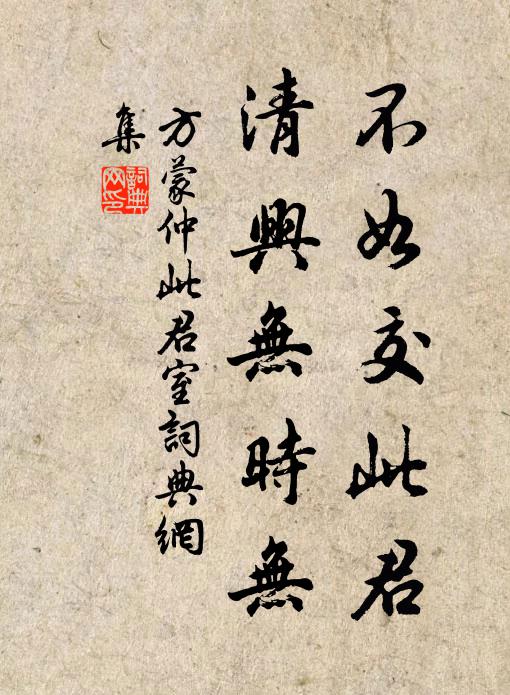 不如交此君
清興無時無
方蒙仲此君室詞典網
集
詞典
网印